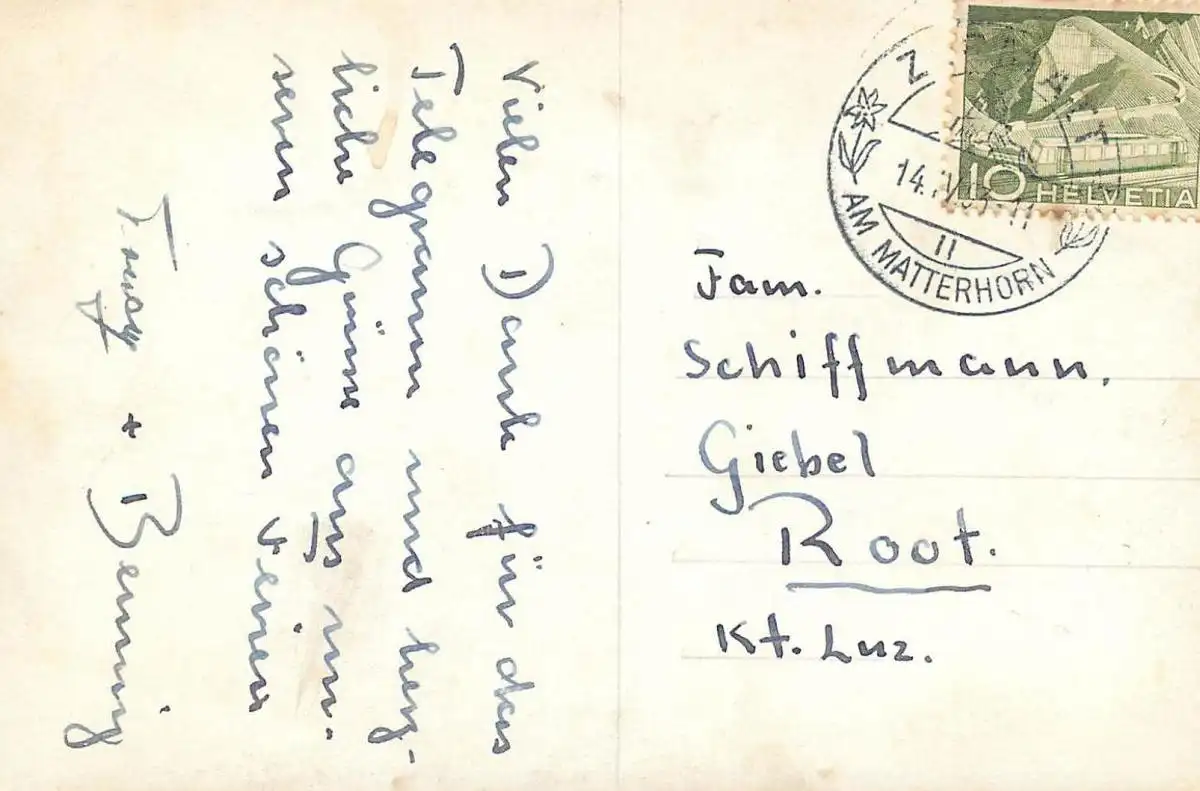 Vielen Dank für das
Telegramm und herz-
liche Grüsse aus un-
seren schönen Ferien
+
Fam.
Schiffmann,
Giebel
Root.
Kt. Luz.
10 HELVETIA
14. 11
AM MATTERHORN
II